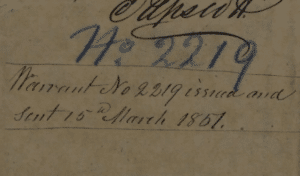 No. 2219
Warrant No 2219 issued and
sent 15th March 1851.